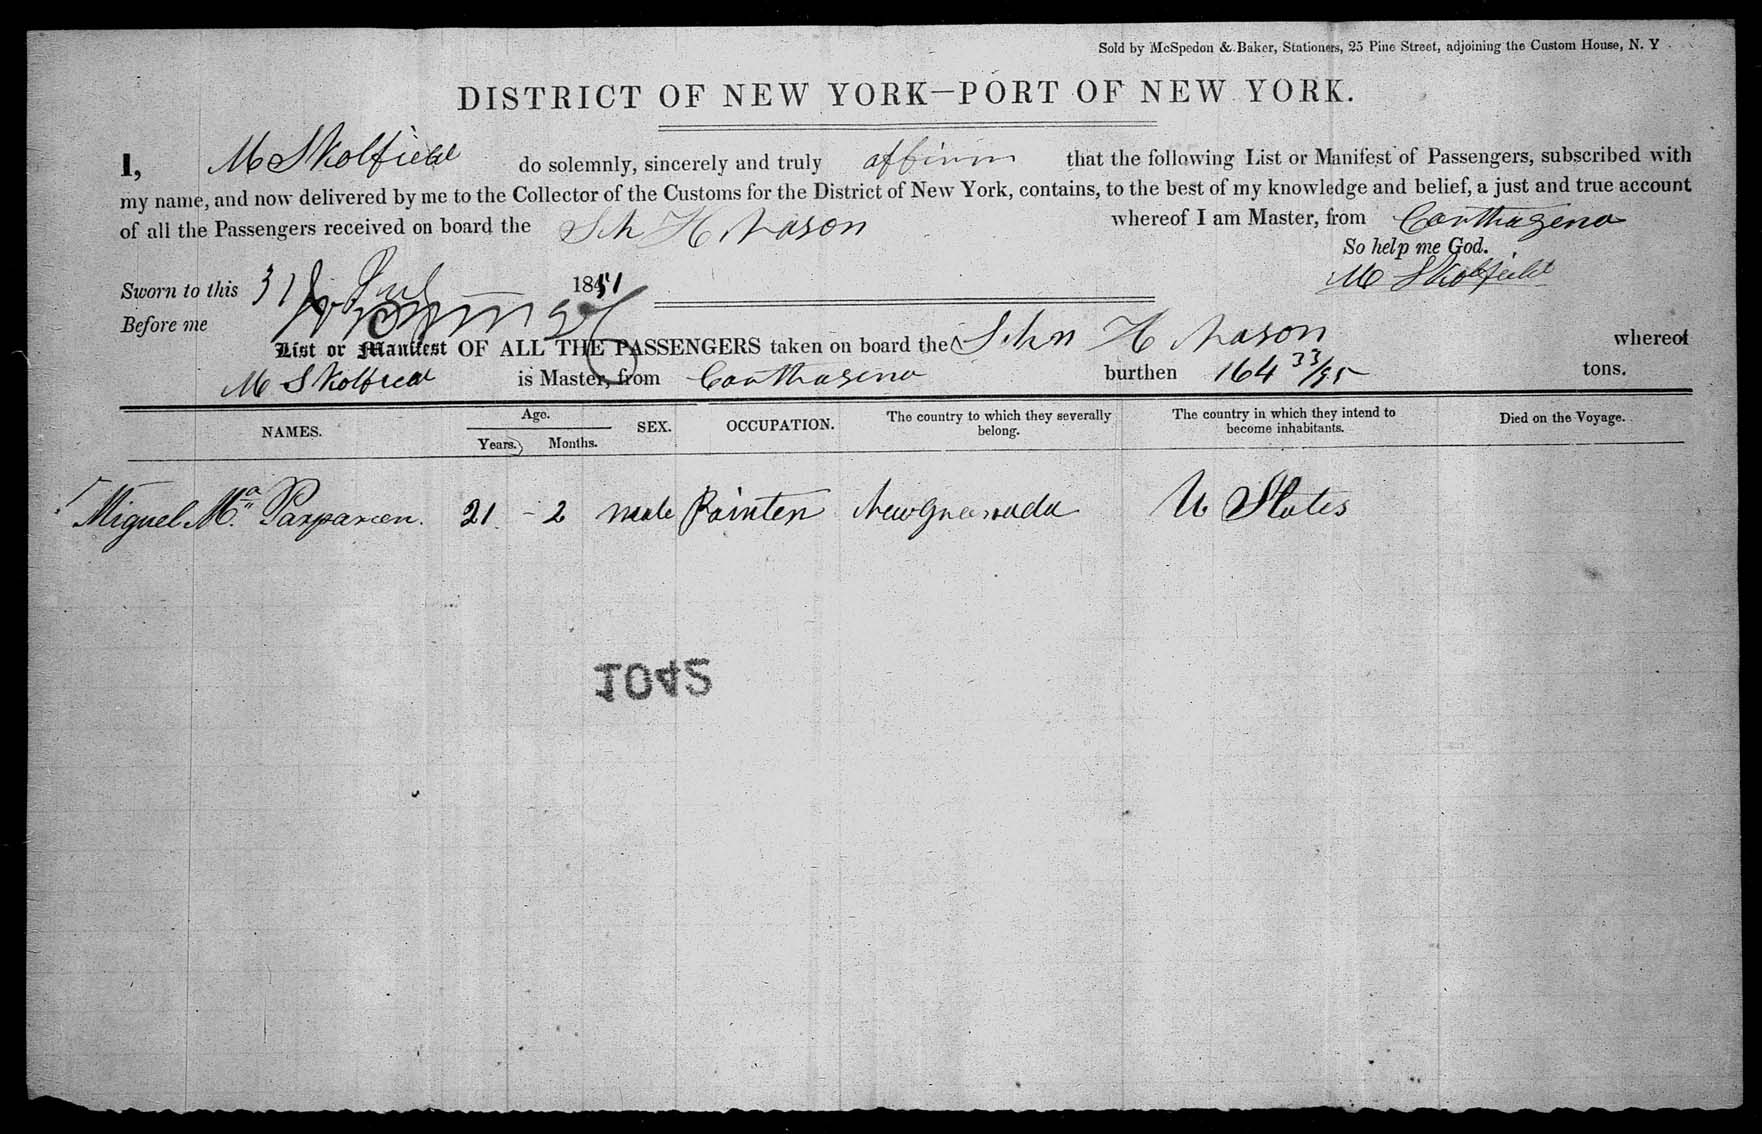 Sold by McSpedon & Baker, Stationers, 25 Pine Street, adjoining the Custom House, N. Y
DISTRICT OF NEW YORK—PORT OF NEW YORK.
I, M Skolfield do solemnly, sincerely and truly affirm that the following List or Manifest of Passengers, subscribed with
my name, and now delivered by me to the Collector of the Customs for the District of New York, contains, to the best of my knowledge and belief, a just and true account
of all the Passengers received on board the Sch H Nason whereof I am Master, from Carthagena
So help me God.
Sworn to this 31 July 1851 M Skolfield
Before me
List or Manifest OF ALL THE PASSENGERS taken on board the Schr H Nason whereof
M Skolfield is Master, from Carthagena burthen 164 33/95 tons.
NAMES. Age. Years. Months. SEX. OCCUPATION. The country to which they severally belong. The country in which they intend to become inhabitants. Died on the Voyage.
Miguel Ma. 21 - 2 male Painter New Grenada U States
1042